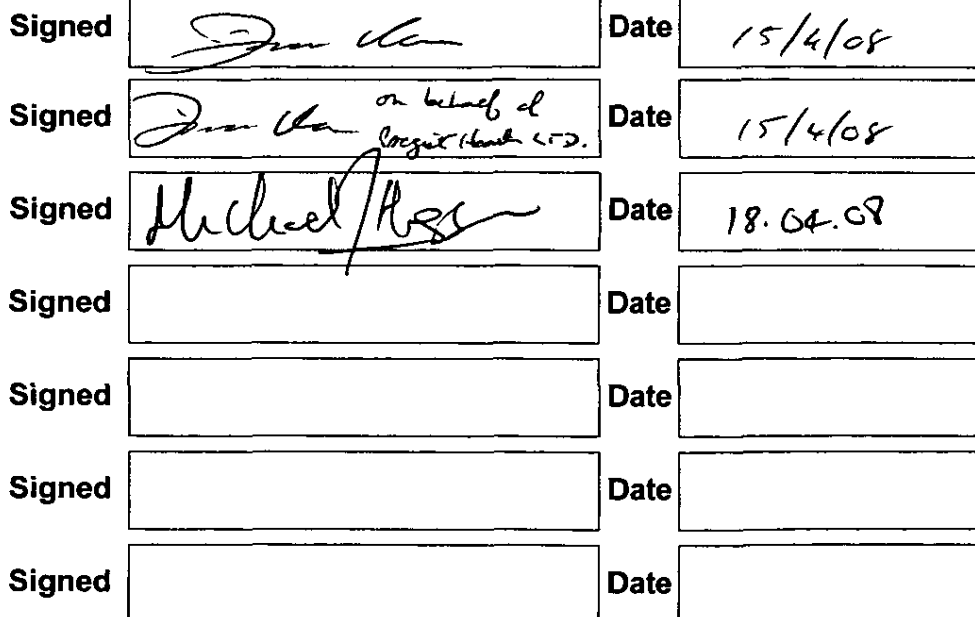 Signed Date 15/4/08
Signed on behalf of Date 15/4/08
LTD.
Signed Michael Date 18.04.08
Signed Date
Signed Date
Signed Date
Signed Date